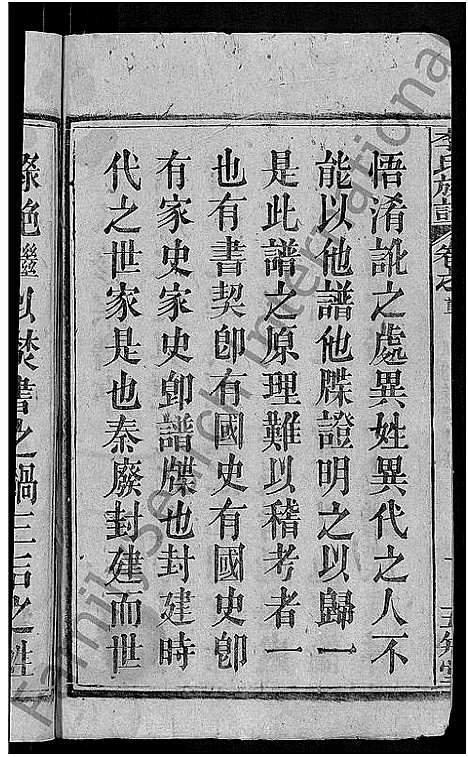 李氏族譜 卷之首
悟淆訛之處異姓異代之人不
能以他譜他牒證明之以歸一
是此譜之原理難以稽考者一
也有書契卽有國史有國史卽
有家史家史卽譜牒也封建時
代之世家是也秦廢封建而世
祿絶繼以焚書之禍三古之姓
FamilySearch International